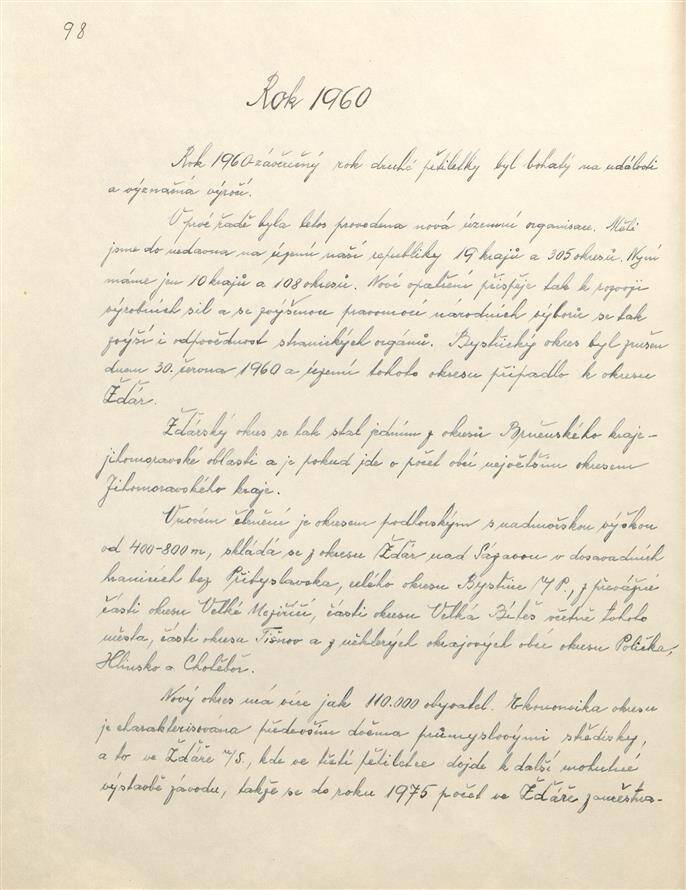 98
Rok 1960
Rok 1960 závěrečný rok druhé pětiletky byl bohatý na události
a význačná výročí.
V prvé řadě byla letos provedena nová územní organisace. Měli
jsme do nedávna na území naší republiky 19 krajů a 305 okresů. Nyní
máme jen 10 krajů a 108 okresů. Nové opatření přispěje tak k rozvoji
výrobních sil a se zvýšenou pravomocí národních výborů se tak
zvýší i odpovědnost stranických orgánů. Bystřický okres byl zrušen
dnem 30. června 1960 a území tohoto okresu připadlo k okresu
Žďár.
Žďárský okres se tak stal jedním z okresů Brněnského kraje -
jihomoravské oblasti a je pokud jde o počet obcí největším okresem
Jihomoravského kraje.
V novém členění je okresem podhorským s nadmořskou výškou
od 400-800 m, skládá se z okresu Žďár nad Sázavou v dosavadních
hranicích bez Přibyslavska, celého okresu Bystřice n/P., z převážné
části okresu Velké Meziříčí, části okresu Velká Bíteš včetně tohoto
města, části okresu Tišnov a z některých okrajových obcí okresu Polička,
Hlinsko a Chotěboř.
Nový okres má více jak 110.000 obyvatel. Ekonomika okresu
je charakterisována především dvěma průmyslovými středisky,
a to ve Žďáře n/S., kde ve třetí pětiletce dojde k další mohutné
výstavbě závodu, takže se do roku 1975 počet ve Žďáře zaměstna-